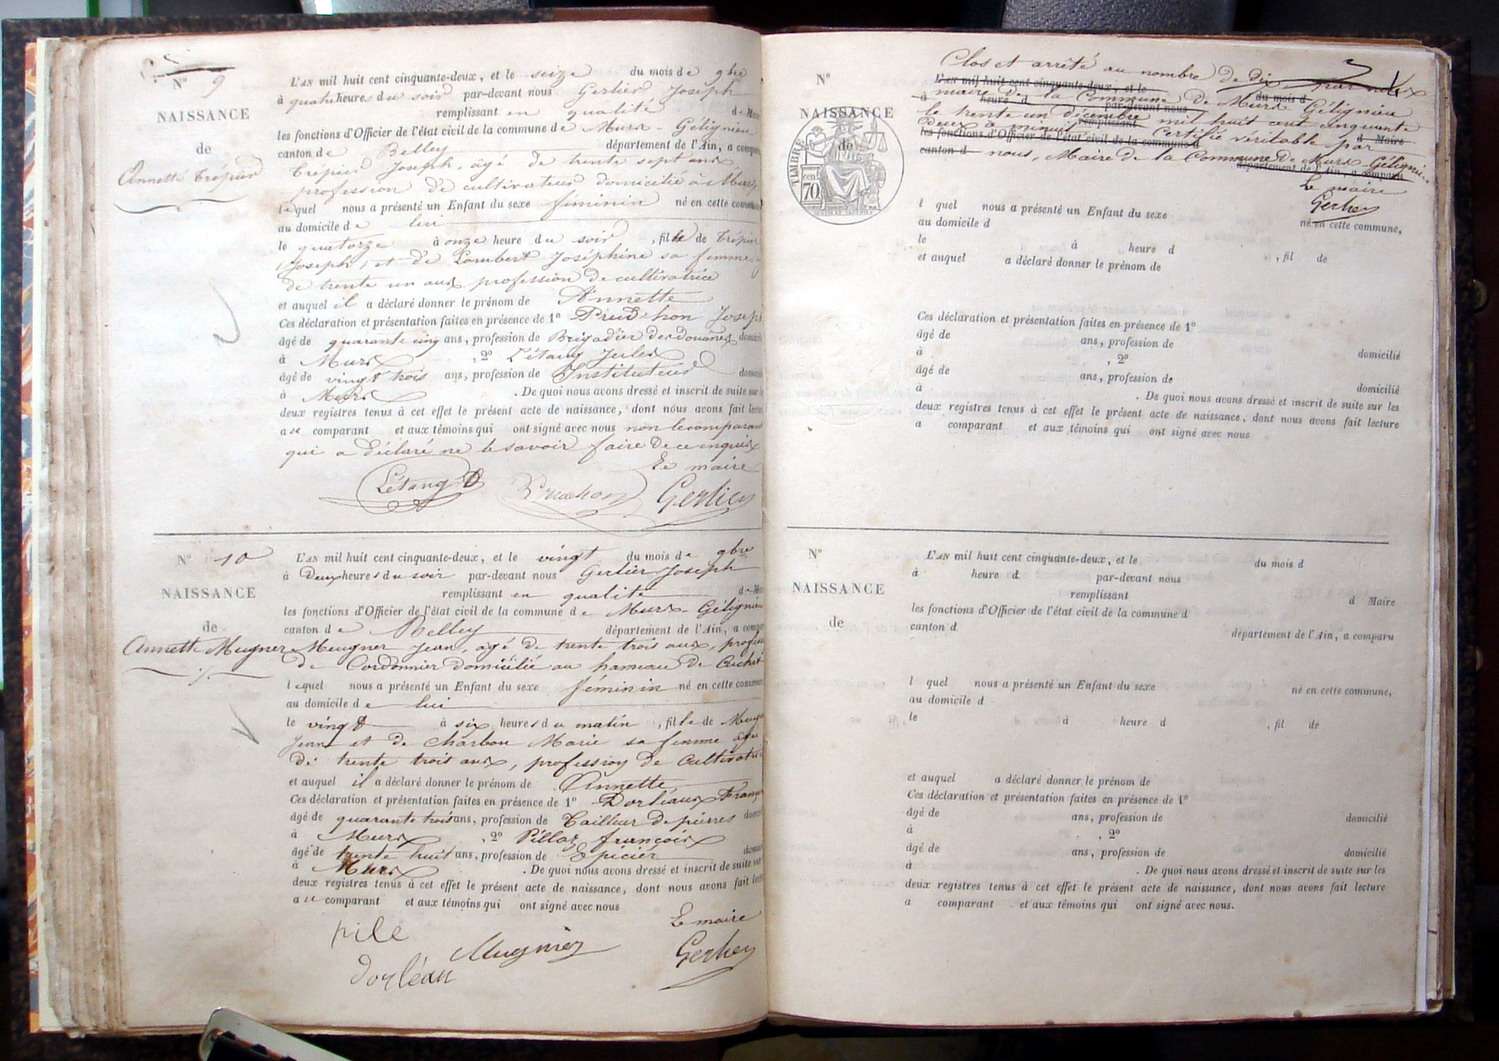 N° 9
NAISSANCE
de
Annette Trépier
L'AN mil huit cent cinquante-deux, et le seize du mois de 9bre
à quatre heures du soir par-devant nous Gerlier Joseph
remplissant en qualité de M
les fonctions d'Officier de l'état civil de la commune de Murs-Gélignieu
canton de Belley département de l'Ain, a comparu
Trépier Joseph, âgé de trente sept ans
profession de cultivateur domicilié à Murs,
lequel nous a présenté un Enfant du sexe féminin né en cette commune
au domicile de lui
le quatorze à onze heure du soir, fille de Trépier
Joseph, et de Lombert Joséphine sa femme
de trente un ans profession de cultivatrice
et auquel il a déclaré donner le prénom de Annette
Ces déclaration et présentation faites en présence de 1° Prudhon Joseph
âgé de quarante cinq ans, profession de Brigadier des douanes domicilié
à Murs, 2° Létang Jules
âgé de vingt trois ans, profession de Instituteur domicilié
à Murs. De quoi nous avons dressé et inscrit de suite sur les
deux registres tenus à cet effet le présent acte de naissance, dont nous avons fait lecture
au comparant et aux témoins qui ont signé avec nous non le comparant
qui a déclaré ne le savoir faire de ce enquis
Le maire
Létang Prudhon Gerlier
N° 10
NAISSANCE
de
Annette Mugner
L'AN mil huit cent cinquante-deux, et le vingt du mois de 9bre
à Deux heures du soir par-devant nous Gerlier Joseph
remplissant en qualité de M
les fonctions d'Officier de l'état civil de la commune de Murs Gélignieu
canton de Belley département de l'Ain, a comparu
Meugner Jean, âgé de trente trois ans, profession
de Cordonnier domicilié au hameau de
lequel nous a présenté un Enfant du sexe féminin né en cette commune
au domicile de lui
le vingt à six heures du matin, fille de
et de Charbon Marie sa femme âgée
de trente trois ans, profession de Cultivatrice
et auquel il a déclaré donner le prénom de Annette
Ces déclaration et présentation faites en présence de 1° Dorléans François
âgé de quarante trois ans, profession de Tailleur de pierres domicilié
à Murs, 2° Pillaz françois
âgé de trente huit ans, profession de Epicier domicilié
à Murs. De quoi nous avons dressé et inscrit de suite sur
deux registres tenus à cet effet le présent acte de naissance, dont nous avons fait lecture
au comparant et aux témoins qui ont signé avec nous
Le maire
pile Mugnier Gerlier
dorléan
N°
NAISSANCE
de
TIMBRE
70
Clos et arrêté au nombre de dix par nous
maire de la Commune de Murs Gélignieu
le trente un Décembre mil huit cent cinquante
deux Certifié véritable par
nous, Maire de la Commune de Murs Gélignieu
Le maire
Gerlier
L'AN mil huit cent cinquante-deux, et le du mois d
à heure d par-devant nous
remplissant
d Maire
les fonctions d'Officier de l'état civil de la commune d
canton d département de l'Ain, a comparu
l quel nous a présenté un Enfant du sexe né en cette commune,
au domicile d
le à heure d , fil de
et auquel a déclaré donner le prénom de
Ces déclaration et présentation faites en présence de 1°
âgé de ans, profession de domicilié
à , 2°
âgé de ans, profession de domicilié
à . De quoi nous avons dressé et inscrit de suite sur les
deux registres tenus à cet effet le présent acte de naissance, dont nous avons fait lecture
a comparant et aux témoins qui ont signé avec nous
N°
NAISSANCE
de
L'AN mil huit cent cinquante-deux, et le du mois d
à heure d par-devant nous
remplissant d Maire
les fonctions d'Officier de l'état civil de la commune d
canton d département de l'Ain, a comparu
l quel nous a présenté un Enfant du sexe né en cette commune,
au domicile d
le à heure d , fil de
et auquel a déclaré donner le prénom de
Ces déclaration et présentation faites en présence de 1°
âgé de ans, profession de domicilié
à , 2°
âgé de ans, profession de domicilié
à . De quoi nous avons dressé et inscrit de suite sur les
deux registres tenus à cet effet le présent acte de naissance, dont nous avons fait lecture
a comparant et aux témoins qui ont signé avec nous.